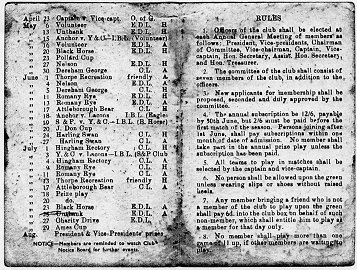 April 23 Captain v. Vice-capt. O. of G.
May 6 Volunteer E.D.L. H
13 Unbank E.D.L. H
15 Anchor v. Y & C.-I.B.L. (Volunteer)
16 Volunteer E.D.L. A
20 Black Horse E.D.L. H
23 Pollard Cup
27 Nelson E.D.L. H
30 Dereham George C.L. A
June 1 Thorpe Recreation friendly A
3 Nelson E.D.L. A
5 Dereham George C.L. H
10 Romany Rye E.D.L. H
13 Romany Rye E.D.L. A
17 Attleborough Bear C.L. H
18 Anchor v. Lacons I.B.L. (Eagle)
20 S & P. v. Y. & C.-I.B.L. (B. Horse)
20 J. Don Cup
24 Harling Swan C.L. H
27 Harling Swan C.L. A
July 1 Hingham Rectory C.L. H
3 Y. & C. v. Lacons-I.B.L. Club
4 Hingham Rectory C.L. A
8 Romany Rye C.L. H
11 Romany Rye C.L. A
13 Thorpe Recreation friendly H
17 Attleborough Bear C.L. A
19 Prize play
20 do.
20 Black Horse E.D.L. A
Unbank E.D.L. A
27 Obesity Drive E.D.L. A
29 Amos Cup
Aug. President & Vice-Presidents' prizes
NOTICE—Members are reminded to watch Club
Notice Board for further events.
RULES
Officers of the club shall be elected at
each Annual General Meeting of members as
follows: President, Vice-presidents, Chairman
of Committee, Vice-chairman, Captain, Vice-
captain, Hon. Secretary, Assist. Hon. Secretary,
and Hon. Treasurer.
2. The committee of the club shall consist of
seven members of the club, in addition to the
officers.
3. New applicants for membership shall be
proposed, seconded and duly approved by the
committee.
4. The annual subscription be 12/6, payable
by 30th June, but 2/6 must be paid before the
first match of the season. Persons joining after
1st June, shall pay subscriptions within one
month of date of admission. No member shall
take part in the annual prize play unless the
subscription has been paid.
5. All teams to play in matches shall be
selected by the captain and vice-captain.
6. No person shall be allowed upon the green
unless wearing slips or shoes without raised
heels.
7. Any member bringing a friend who is not
a member of the club to play upon the green
shall pay 6d. into the club box on behalf of such
non-member, which shall entitle him to play as
a member for that day only.
8. No member shall play more than one
game of 11 up, if other members are waiting to
play.